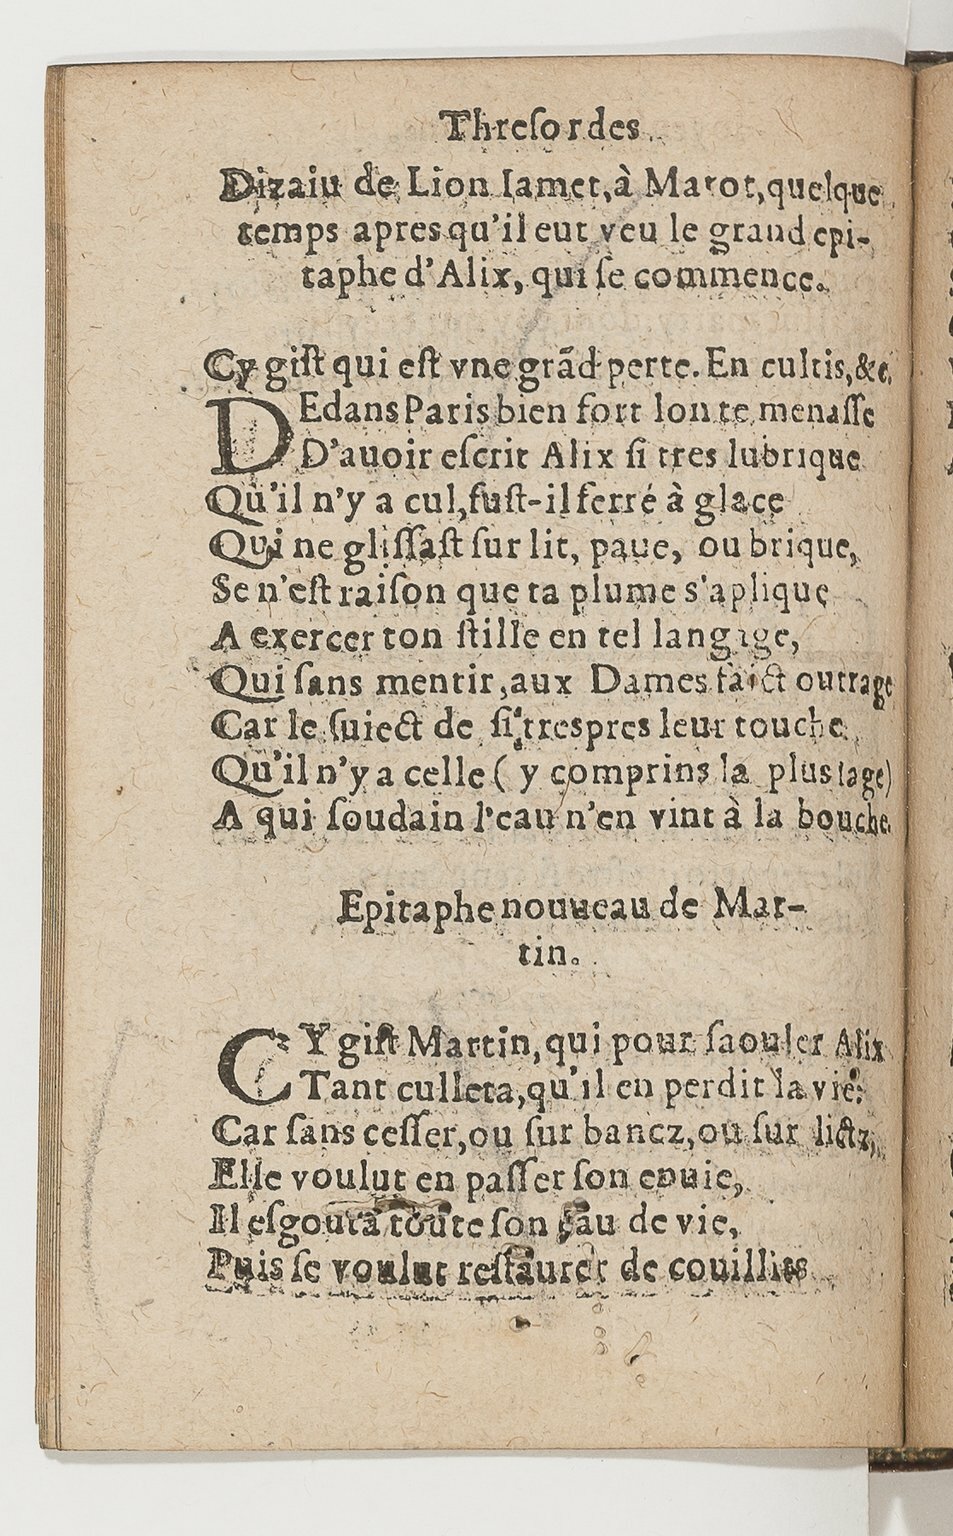 Thresor des
Dizaiu de Lion Iamet, à Marot, quelque
temps apres qu'il eut veu le grand epi-
taphe d'Alix, qui se commence.
Cy gist qui est vne grãd perte. En cultis, &c.
DEdans Paris bien fort lon te menasse
D'auoir escrit Alix si tres lubrique
Qu'il n'y a cul, fust-il ferré à glace
Qui ne glissast sur lit, paue, ou brique,
Se n'est raison que ta plume s'aplique
A exercer ton stille en tel langage,
Qui sans mentir, aux Dames faict outrage
Car le suiect de si trespres leur touche
Qu'il n'y a celle ( y comprins la plus sage)
A qui soudain l'eau n'en vint à la bouche.
Epitaphe nouueau de Mar-
tin.
CY gist Martin, qui pour saouler Alix
Tant culleta, qu'il en perdit la vie:
Car sans cesser, ou sur bancz, ou sur lictz,
Elle voulut en passer son enuie,
Il esgouta toute son eau de vie,
Puis se voulut restaurer de couillies